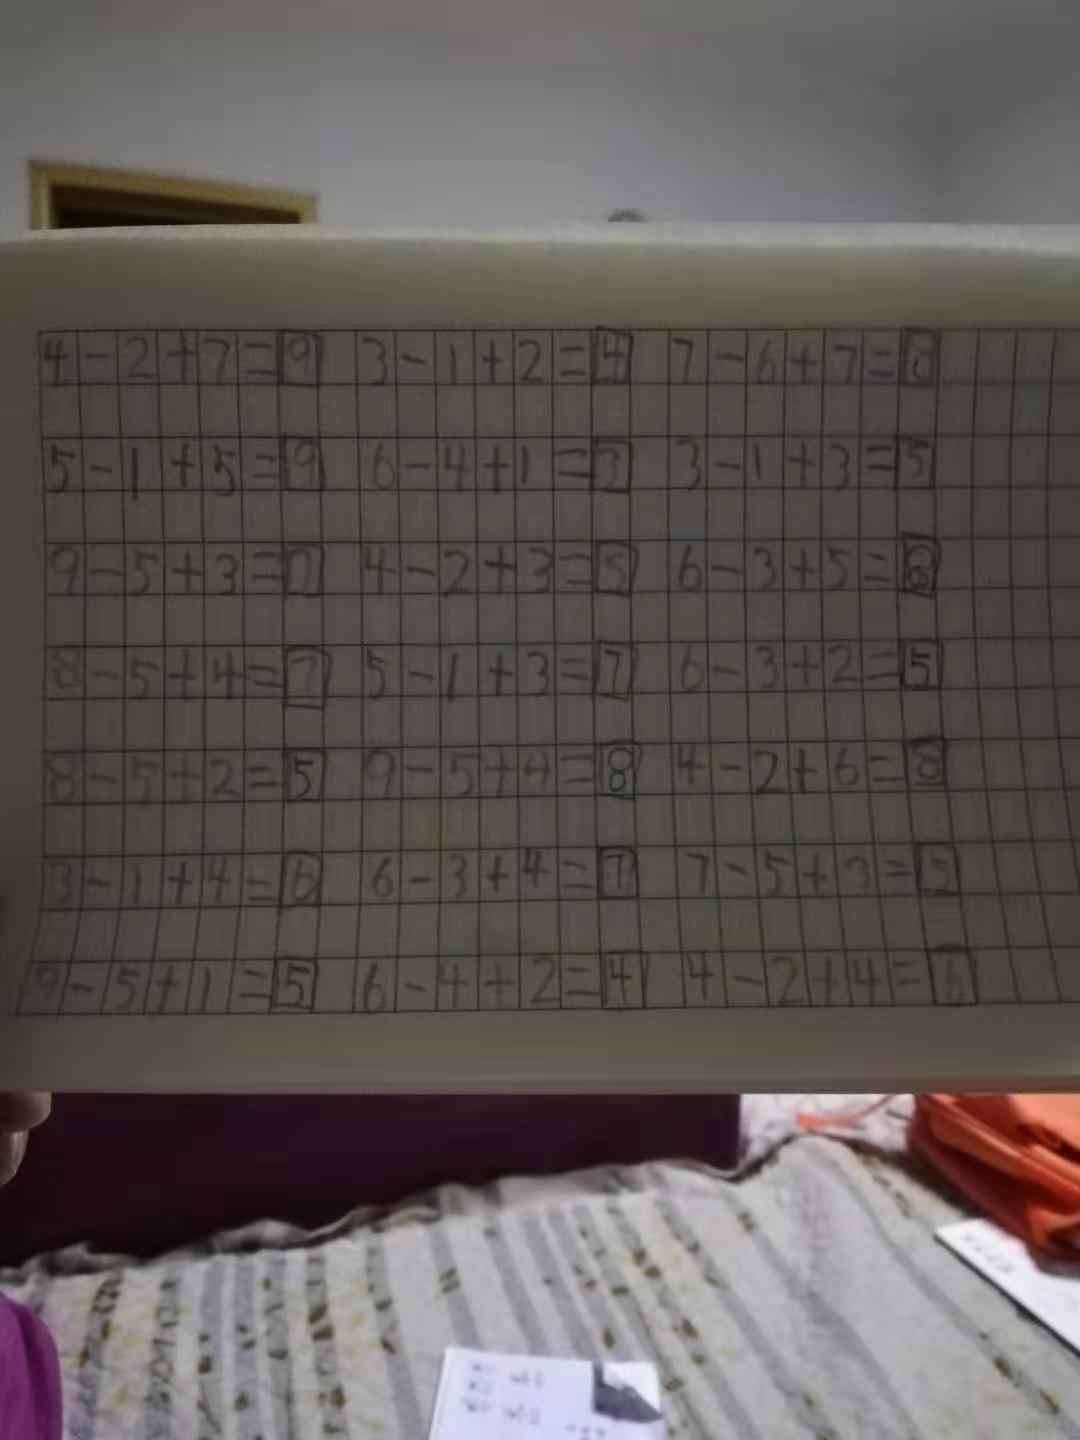 4-2+7=9 3-1+2=4 7-6+7=8
5-1+5=9 6-4+1=3 3-1+3=5
9-5+3=7 4-2+3=5 6-3+5=8
8-5+4=7 5-1+3=7 6-3+2=5
8-5+2=5 9-5+4=8 4-2+6=8
3-1+4=6 6-3+4=7 7-5+3=5
9-5+1=5 6-4+2=4 4-2+4=6